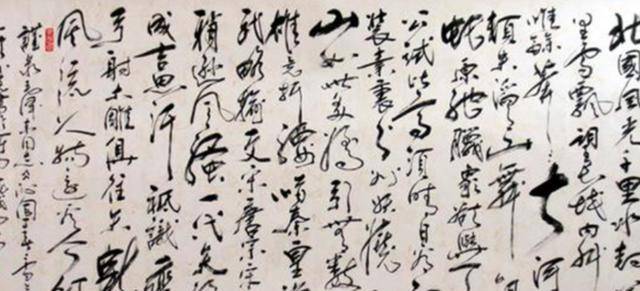 北國風光千里冰封
里雪飄望長城內外
惟餘莽莽大河
頓失滔滔山舞
蛇原馳蠟象欲與天
公試比高須晴日看
裝素裹分外妖嬈
山如此多嬌引無數
雄競折腰惜秦皇
武略輸文采唐宗宋
稍遜風騷一代天
成吉思汗祇識彎
弓射大雕俱往矣數
風流人物還看今朝
毛澤東同志沁園春雪